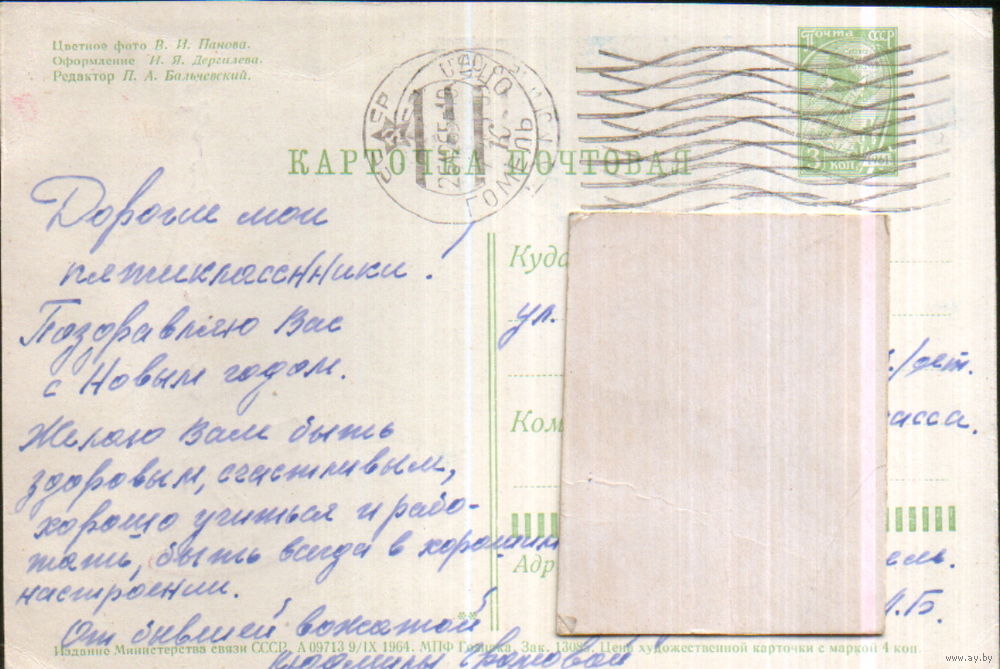 Цветное фото В. И. Панова.
Оформление И. Я. Дергилева.
Редактор П. А. Бальчевский.
Почта СССР
3 коп. 1961
СССР
ГОМЕЛЬ
КАРТОЧКА ПОЧТОВАЯ
Дорогие мои
пятиклассники!
Поздравляю Вас
с Новым годом.
Желаю Вам быть
здоровым, счастливым,
хорошо учиться и рабо-
тать, быть всегда в хорошим
настроении.
От бывшей вожатой
Людмилы
Куда
ул.
/дет.
Ком
асса.
Адр
ель.
Л.Б.
Издание Министерства связи СССР. А 09713 9/IX 1964. МПФ Гознака. Зак. Цена художественной карточки с маркой 4 коп.
www.ay.by